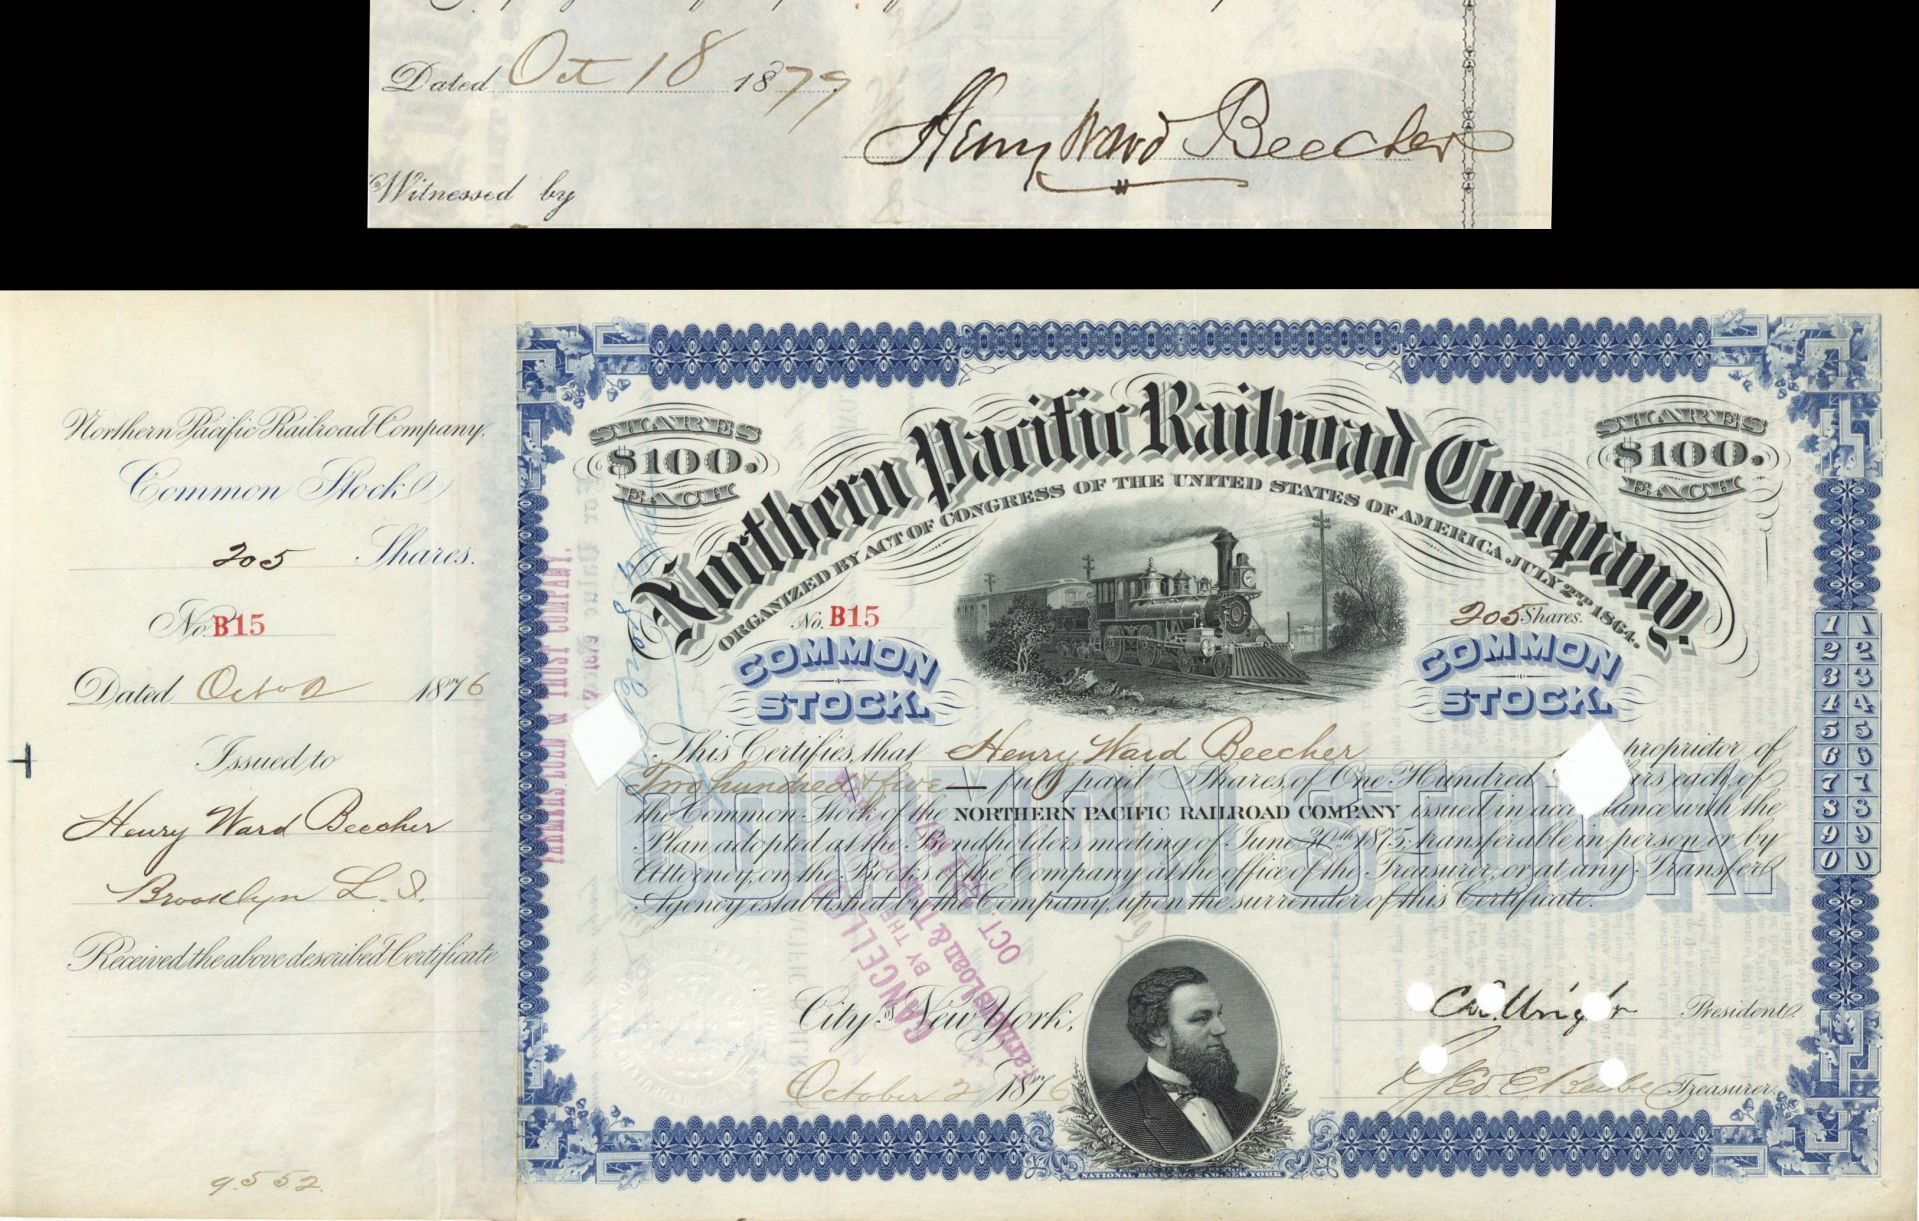 Dated Oct 18 1879
Henry Ward Beecher
Witnessed by
Northern Pacific Railroad Company.
Common Stock
205 Shares.
No. B15
Dated Oct 2 1876
Issued to
Henry Ward Beecher
Brooklyn L. I.
Received the above described Certificate
9552.
SHARES $100. EACH
SHARES $100. EACH
Northern Pacific Railroad Company.
ORGANIZED BY ACT OF CONGRESS OF THE UNITED STATES OF AMERICA, JULY 2ND 1864.
No. B15
205 Shares.
COMMON STOCK.
COMMON STOCK.
This Certifies, that Henry Ward Beecher proprietor of
Two hundred & five full paid Shares, of One Hundred each, of
the Common Stock of the NORTHERN PACIFIC RAILROAD COMPANY issued in accordance with the
Plan adopted at the Bondholders meeting of June 30th 1875; transferable in person or by
Attorney, on the Books of the Company at the office of the Treasurer, or at any Transfer
Agency established by the Company, upon the surrender of this Certificate.
COMMON STOCK.
FARMERS LOAN & TRUST COMPANY.
CANCELLED
BY THE
Farmers Loan & T
OCT
City of New York,
October 2 1876
President.
Geo. E. Beebe Treasurer.
NATIONAL BANK NOTE CO. NEW YORK
1 1
2 2
3 3
4 4
5 5
6 6
7 7
8 8
9 9
0 0